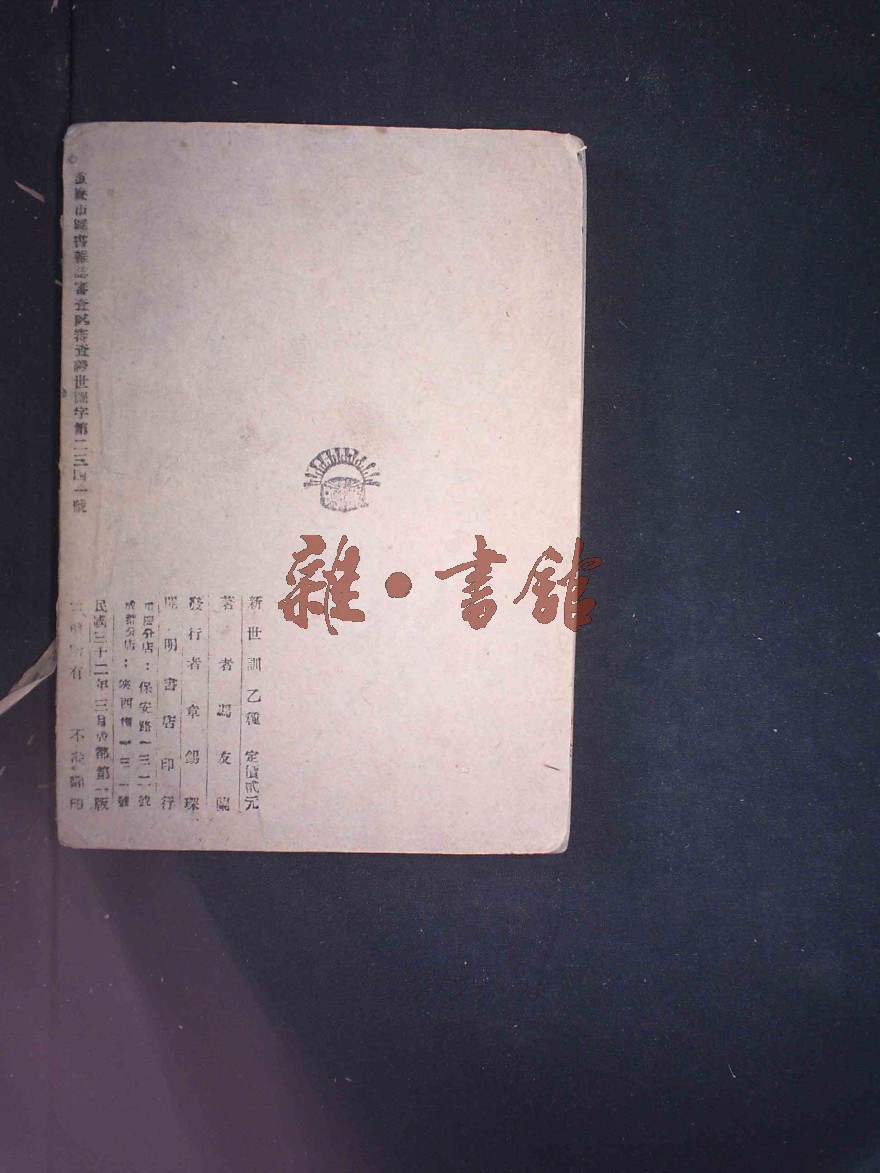 新世訓乙種 定價貳元
著者 馮友蘭
發行者 章錫琛
開明書店印行
重慶分店：保安路一三二號
成都分店：陝西街一三一號
民國三十二年三月成都第一版
所有 不准翻印
重慶市圖書雜誌審查處審查證世圖字第二三四一號
雜·書館